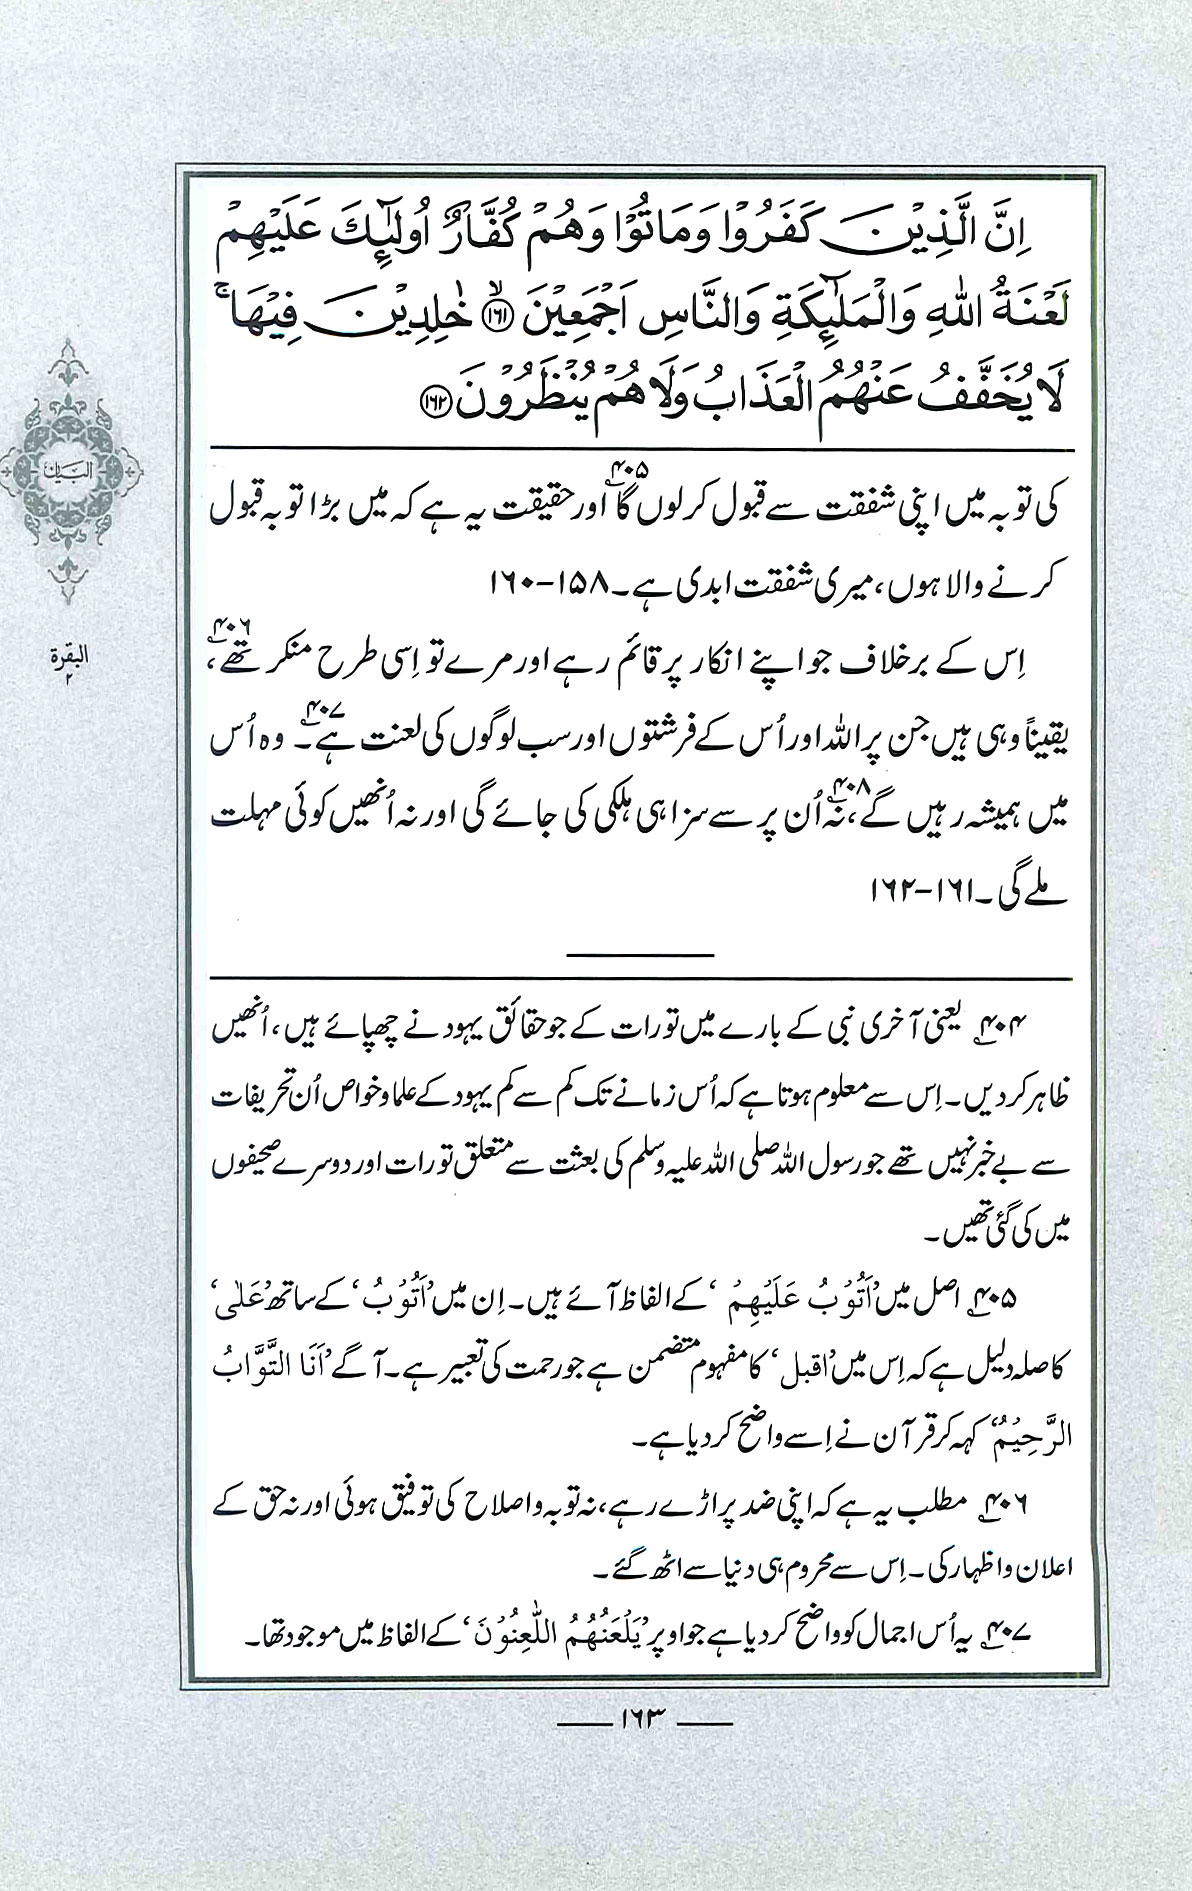 اِنَّ الَّذِيْنَ كَفَرُوْا وَمَاتُوْا وَهُمْ كُفَّارٌ اُولٰٓئِكَ عَلَيْهِمْ
لَعْنَةُ اللّٰهِ وَالْمَلٰٓئِكَةِ وَالنَّاسِ اَجْمَعِيْنَ ۙ﴿۱۶۱﴾ خٰلِدِيْنَ فِيْهَا ۚ
لَا يُخَفَّفُ عَنْهُمُ الْعَذَابُ وَلَا هُمْ يُنْظَرُوْنَ ﴿۱۶۲﴾
کی توبہ میں اپنی شفقت سے قبول کرلوں گا۴۰۵ اور حقیقت یہ ہے کہ میں بڑا توبہ قبول
کرنے والا ہوں، میری شفقت ابدی ہے۔ ۱۵۸–۱۶۰
اِس کے برخلاف جو اپنے انکار پر قائم رہے اور مرے تو اِسی طرح منکر تھے۴۰۶،
یقیناً وہی ہیں جن پر اللہ اور اُس کے فرشتوں اور سب لوگوں کی لعنت ہے۴۰۷۔ وہ اُس
میں ہمیشہ رہیں گے،۴۰۸ نہ اُن پر سے سزا ہی ہلکی کی جائے گی اور نہ اُنھیں کوئی مہلت
ملے گی۔ ۱۶۱–۱۶۲
۴۰۴ یعنی آخری نبی کے بارے میں تورات کے جو حقائق یہود نے چھپائے ہیں، اُنھیں
ظاہر کردیں۔ اِس سے معلوم ہوتا ہے کہ اُس زمانے تک کم سے کم یہود کے علما و خواص اُن تحریفات
سے بے خبر نہیں تھے جو رسول اللہ صلی اللہ علیہ وسلم کی بعثت سے متعلق تورات اور دوسرے صحیفوں
میں کی گئی تھیں۔
۴۰۵ اصل میں ’اَتُوْبُ عَلَيْهِمْ‘ کے الفاظ آئے ہیں۔ اِن میں ’اَتُوْبُ‘ کے ساتھ ’عَلٰی‘
کا صلہ دلیل ہے کہ اِس میں ’اقبل‘ کا مفہوم متضمن ہے جو رحمت کی تعبیر ہے۔ آگے ’اَنَا التَّوَّابُ
الرَّحِيْمُ‘ کہہ کر قرآن نے اِسے واضح کردیا ہے۔
۴۰۶ مطلب یہ ہے کہ اپنی ضد پر اڑے رہے، نہ توبہ و اصلاح کی توفیق ہوئی اور نہ حق کے
اعلان و اظہار کی۔ اِس سے محروم ہی دنیا سے اٹھ گئے۔
۴۰۷ یہ اُس اجمال کو واضح کردیا ہے جو اوپر ’يَلْعَنُهُمُ اللّٰعِنُوْنَ‘ کے الفاظ میں موجود تھا۔
البیان
البقرة
۲
۱۶۳